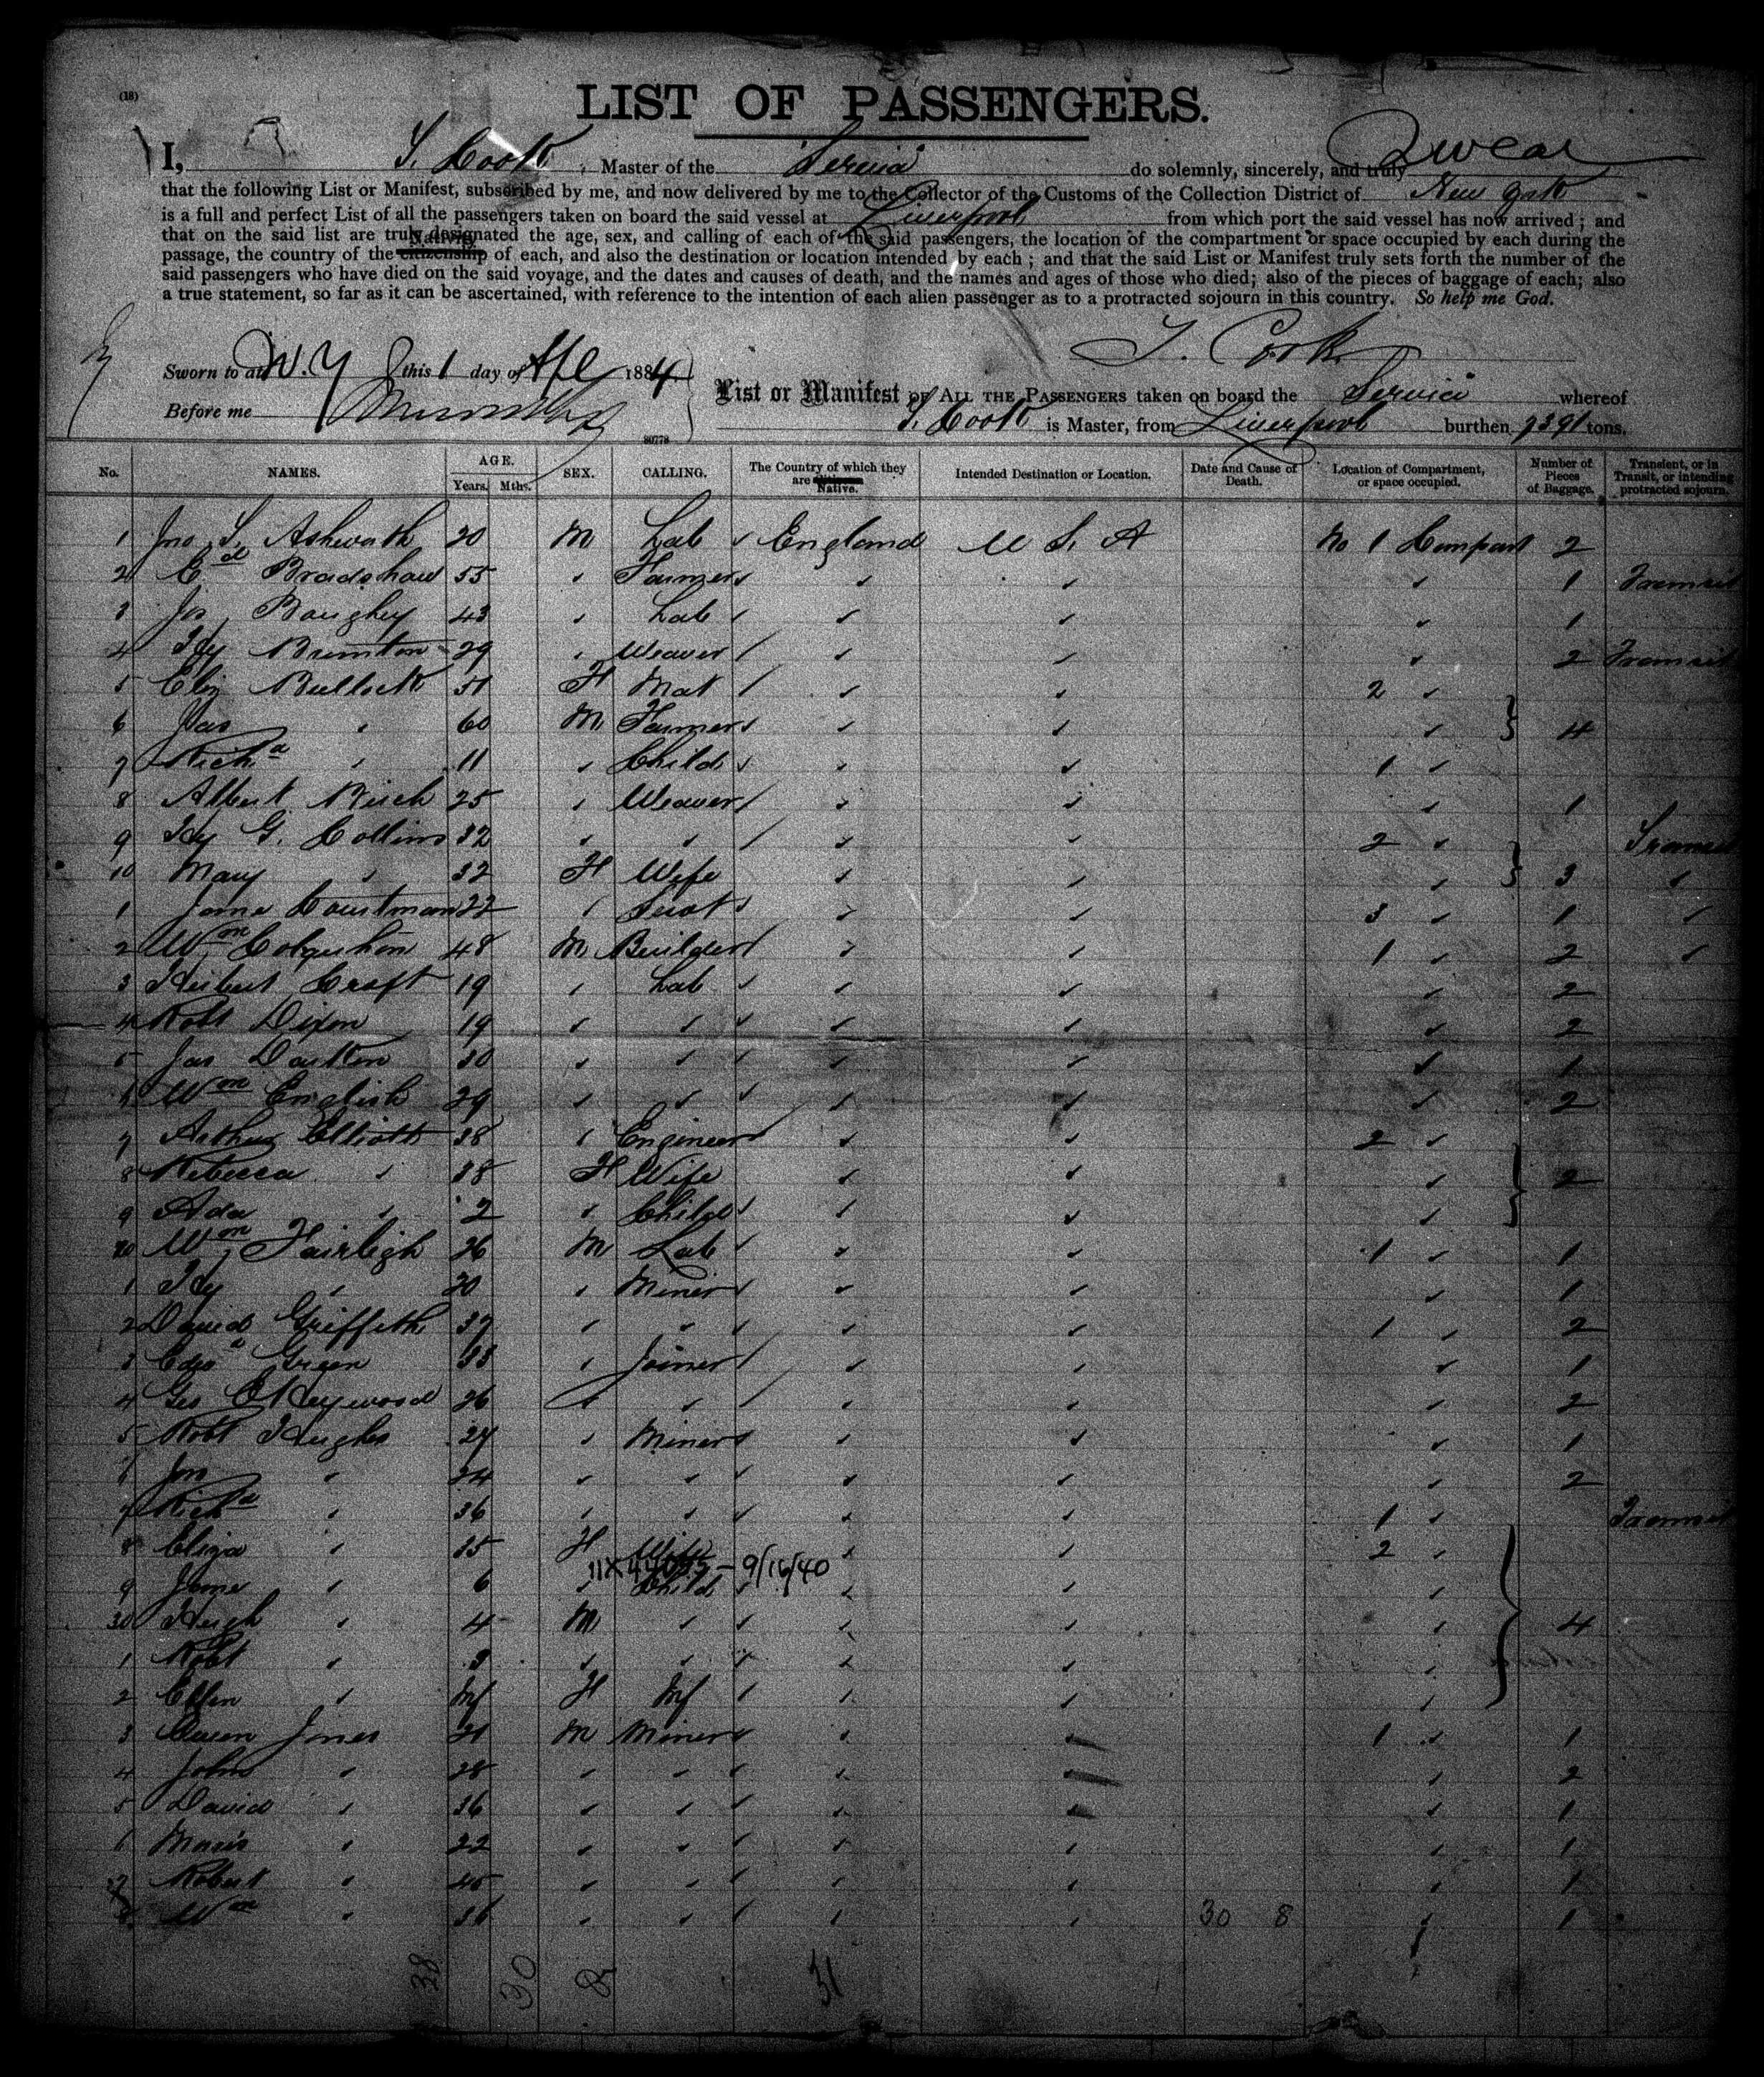 (18)
LIST OF PASSENGERS.
I, T. Cook, Master of the Servia do solemnly, sincerely, and truly Swear
that the following List or Manifest, subscribed by me, and now delivered by me to the Collector of the Customs of the Collection District of New York
is a full and perfect List of all the passengers taken on board the said vessel at Liverpool from which port the said vessel has now arrived; and
that on the said list are truly designated the age, sex, and calling of each of the said passengers, the location of the compartment or space occupied by each during the
Nativity
passage, the country of the citizenship of each, and also the destination or location intended by each; and that the said List or Manifest truly sets forth the number of the
said passengers who have died on the said voyage, and the dates and causes of death, and the names and ages of those who died; also of the pieces of baggage of each; also
a true statement, so far as it can be ascertained, with reference to the intention of each alien passenger as to a protracted sojourn in this country. So help me God.
T. Cook
Sworn to at N.Y this 1 day of Apl 1884
Before me
List or Manifest OF ALL THE PASSENGERS taken on board the Servia whereof
T. Cook is Master, from Liverpool burthen 7391 tons.
80778
No. NAMES. AGE. Years. Mths. SEX. CALLING. The Country of which they are Native. Intended Destination or Location. Date and Cause of Death. Location of Compartment, or space occupied. Number of Pieces of Baggage. Transient, or in Transit, or intending protracted sojourn.
1 Jno S. Ashworth 20 M Lab ✓ England U S. A No 1 Compart 2
2 Ed Bradshaw 55 " Farmer ✓ " " " 1 Transit
3 Jos Boughey 43 " Lab / " " " 1
4 Hy Brunton 29 " Weaver / " " " 2 Transit
5 Eliz Bullock 51 F Mat / " " 2 "
6 Jas " 60 M Farmer ✓ " " " 4
7 Richd " 11 " Child ✓ " " 1 "
8 Albert Birch 25 " Weaver / " " " 1
9 Hy G. Collins 32 " " / " " 2 " Transit
10 Mary " 32 F Wife " " " 3 "
1 Jane Coustman 22 " " " 3 " 1 "
2 Wm Colquhon 48 M Builder / " " 1 " 2 "
3 Herbert Craft 19 " Lab ✓ " " " 2
4 Robt Dixon 19 " " ✓ " " " 2
5 Jas Daulton 30 " " / " " " 1
6 Wm English 29 " " ✓ " " " 2
7 Arthur Elliott 38 " Engineer / " " 2 "
8 Rebecca " 38 F Wife " " " 2
9 Ada " 2 " Child ✓ " " "
20 Wm Fairleigh 26 M Lab ✓ " " 1 " 1
1 Hy " 20 " Miner ✓ " " " 1
2 David Griffith 37 " " / " " 1 " 2
3 Edwd Green 33 " Joiner / " " " 1
4 Geo E Heywood 26 " " / " " " 2
5 Robt Hughes 24 " Miner ✓ " " " 1
6 Jno " 24 " " ✓ " " " 2
7 Richd " 36 " " ✓ " " 1 " Transit
8 Eliza " 35 F Wife " " 2 "
11X44095 - 9/16/40
9 Jane " 6 " Child ✓ " " "
30 Hugh " 4 M " ✓ " " " 4
1 Robt " 3 " " ✓ " " "
2 Ellen " Inf F Inf / " " "
3 Owen Jones 21 M Miner ✓ " " 1 " 1
4 John " 28 " " ✓ " " " 2
5 David " 36 " " ✓ " " " 1
6 Morris " 22 " " / " " " 1
7 Robert " 45 " " / " " " 1
8 Wm " 31 " " / " " 30 8 " 1
38 30 8 31